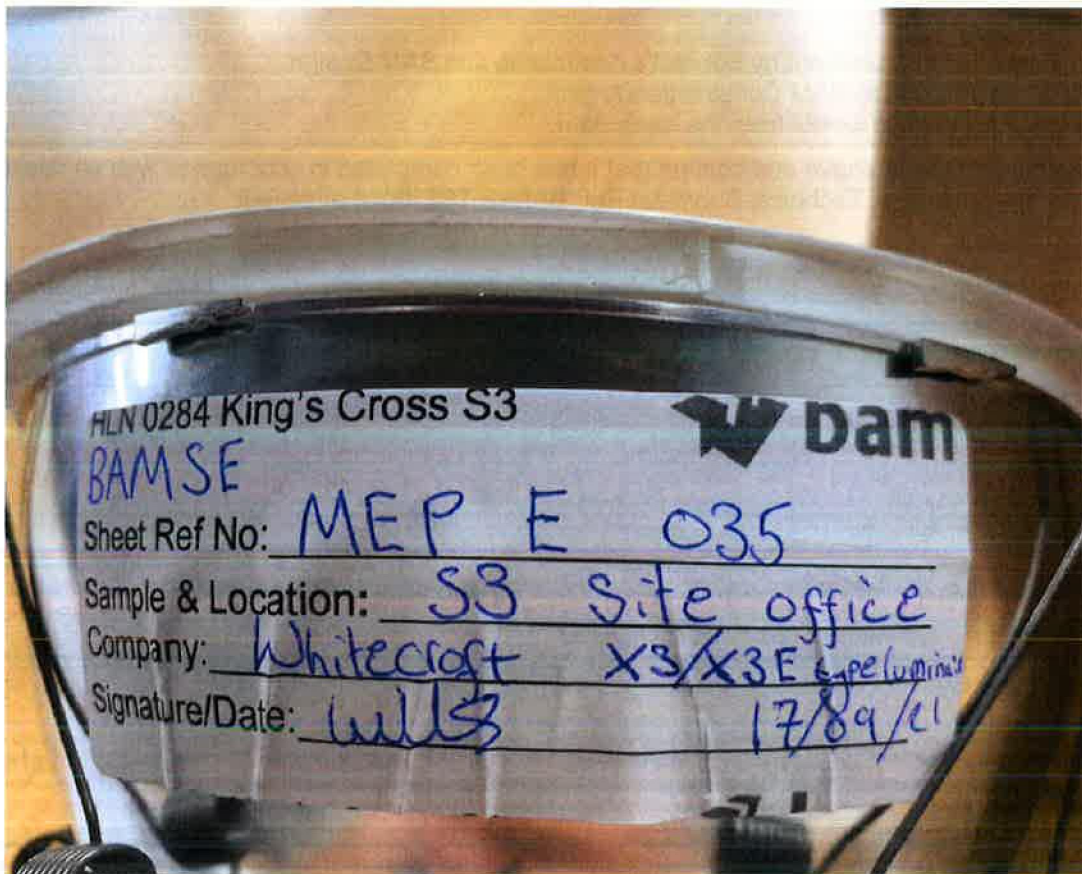 HLN 0284 King's Cross S3
bam
BAMSE
Sheet Ref No: MEP E 035
Sample & Location: S3 Site office
Company: Whitecroft X3/X3E type
Signature/Date: 17/09/21